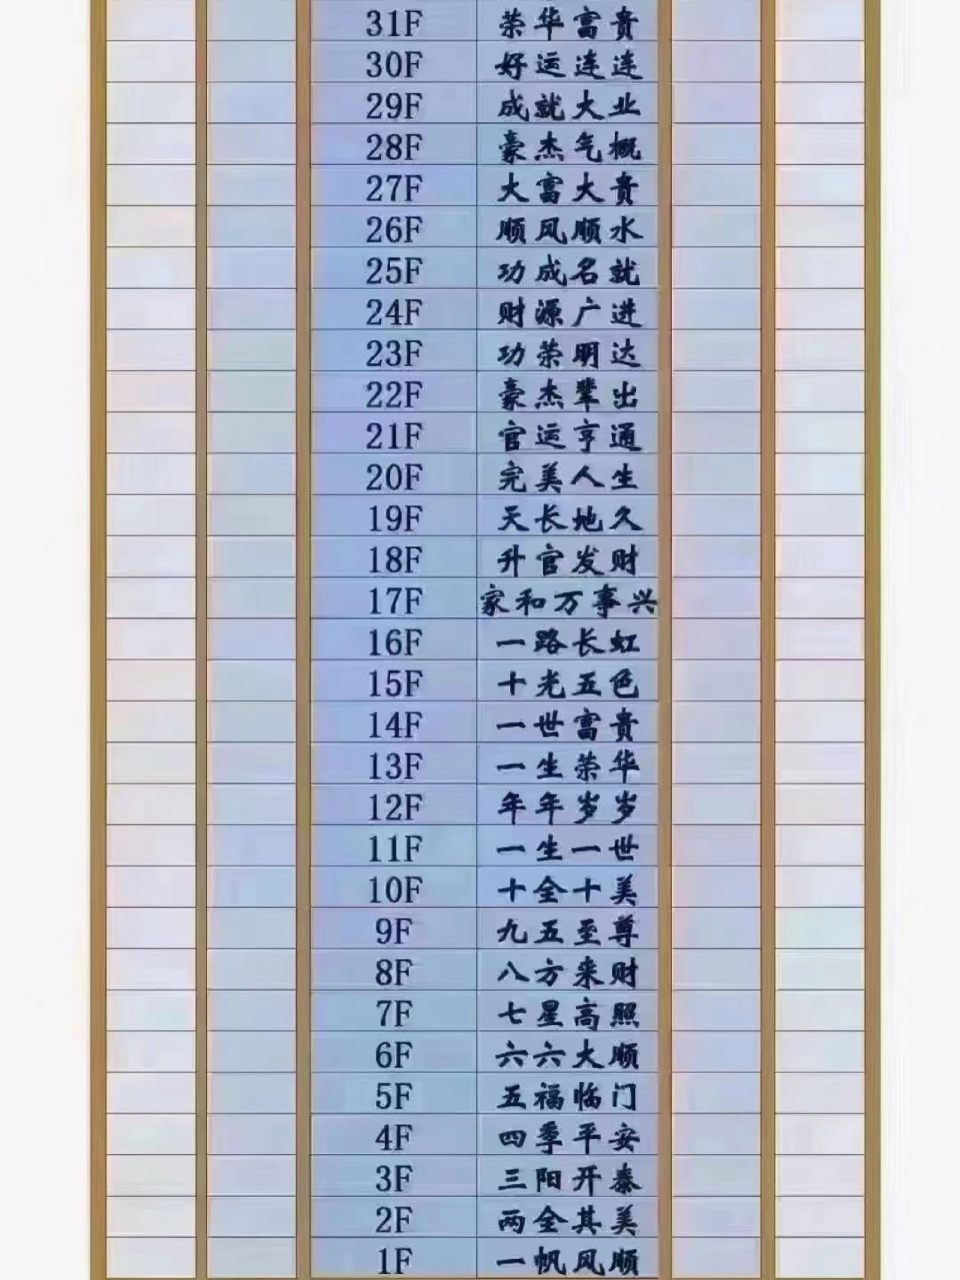 31F 荣华富贵
30F 好运连连
29F 成就大业
28F 豪杰气概
27F 大富大贵
26F 顺风顺水
25F 功成名就
24F 财源广进
23F 功荣明达
22F 豪杰辈出
21F 官运亨通
20F 完美人生
19F 天长地久
18F 升官发财
17F 家和万事兴
16F 一路长虹
15F 十光五色
14F 一世富贵
13F 一生荣华
12F 年年岁岁
11F 一生一世
10F 十全十美
9F 九五至尊
8F 八方来财
7F 七星高照
6F 六六大顺
5F 五福临门
4F 四季平安
3F 三阳开泰
2F 两全其美
1F 一帆风顺